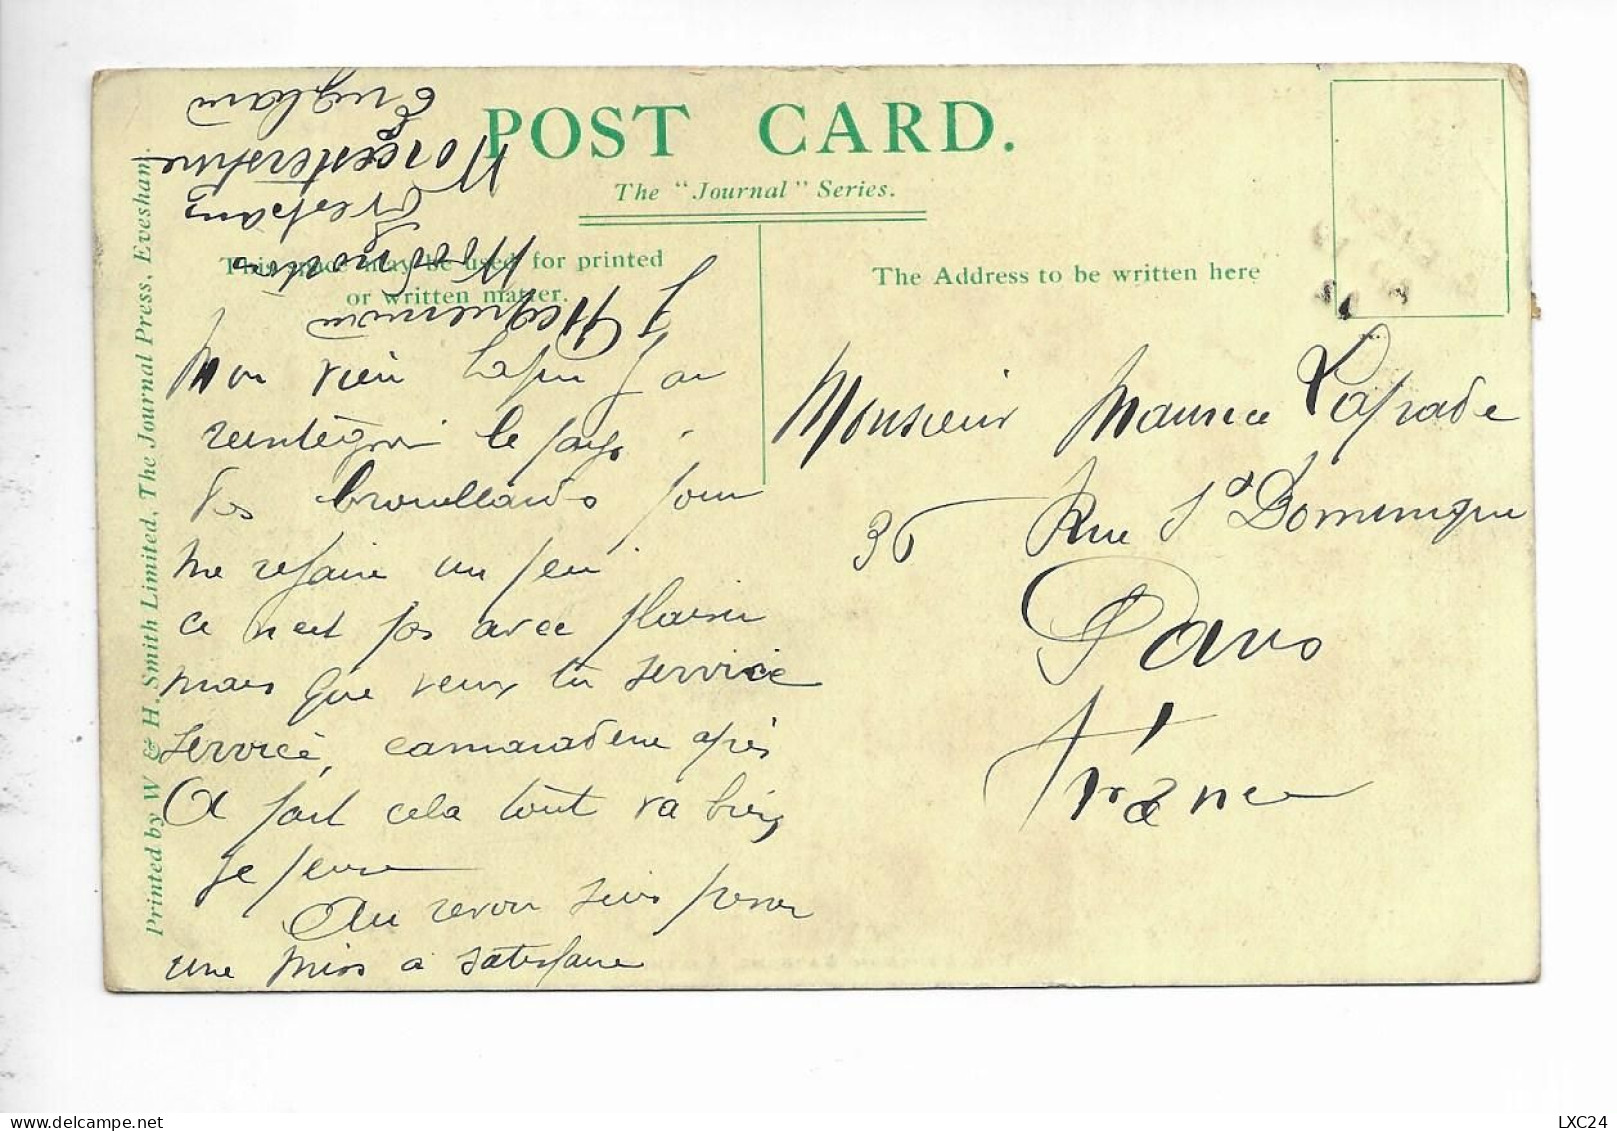 POST CARD.
The "Journal" Series.
This space may be used for printed
or written matter.
The Address to be written here
Printed by W & H. Smith Limited, The Journal Press, Evesham.
Mon vieu Lapin J'ai
reintegrai le pays
des brouillards pour
me refaire un peu
ce n'est pas avec plaisir
mais que veux tu service
service, camaraderie après
A part cela tout va bien,
je pense
Au revoir suis pour
une miss a satisfaire
Monsieur Maurice Laprade
36 Rue St Dominique
Paris
France
Norton
Evesham
Worcestershire
England
LXC24